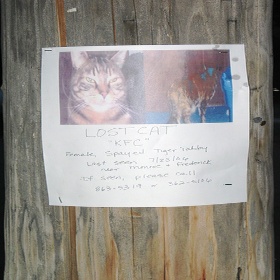 LOST CAT
"KFC"
Female, Spayed Tiger Tabby
Last seen 7/23/06
near + Frederick
If seen, please call
or